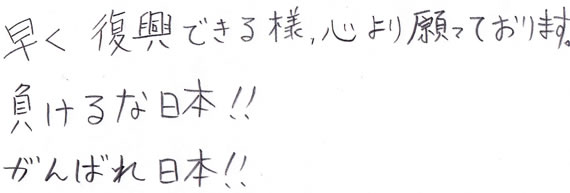 早く復興できる様,心より願っております。
負けるな日本!!
がんばれ日本!!